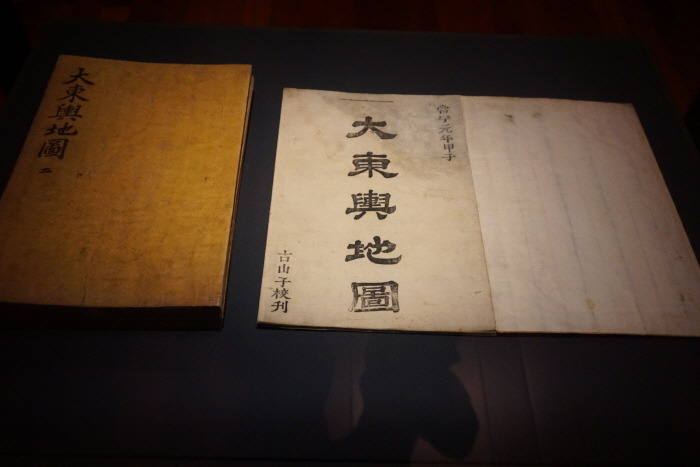 大東輿地圖 二
當宁元年甲子
大東輿地圖
古山子校刊